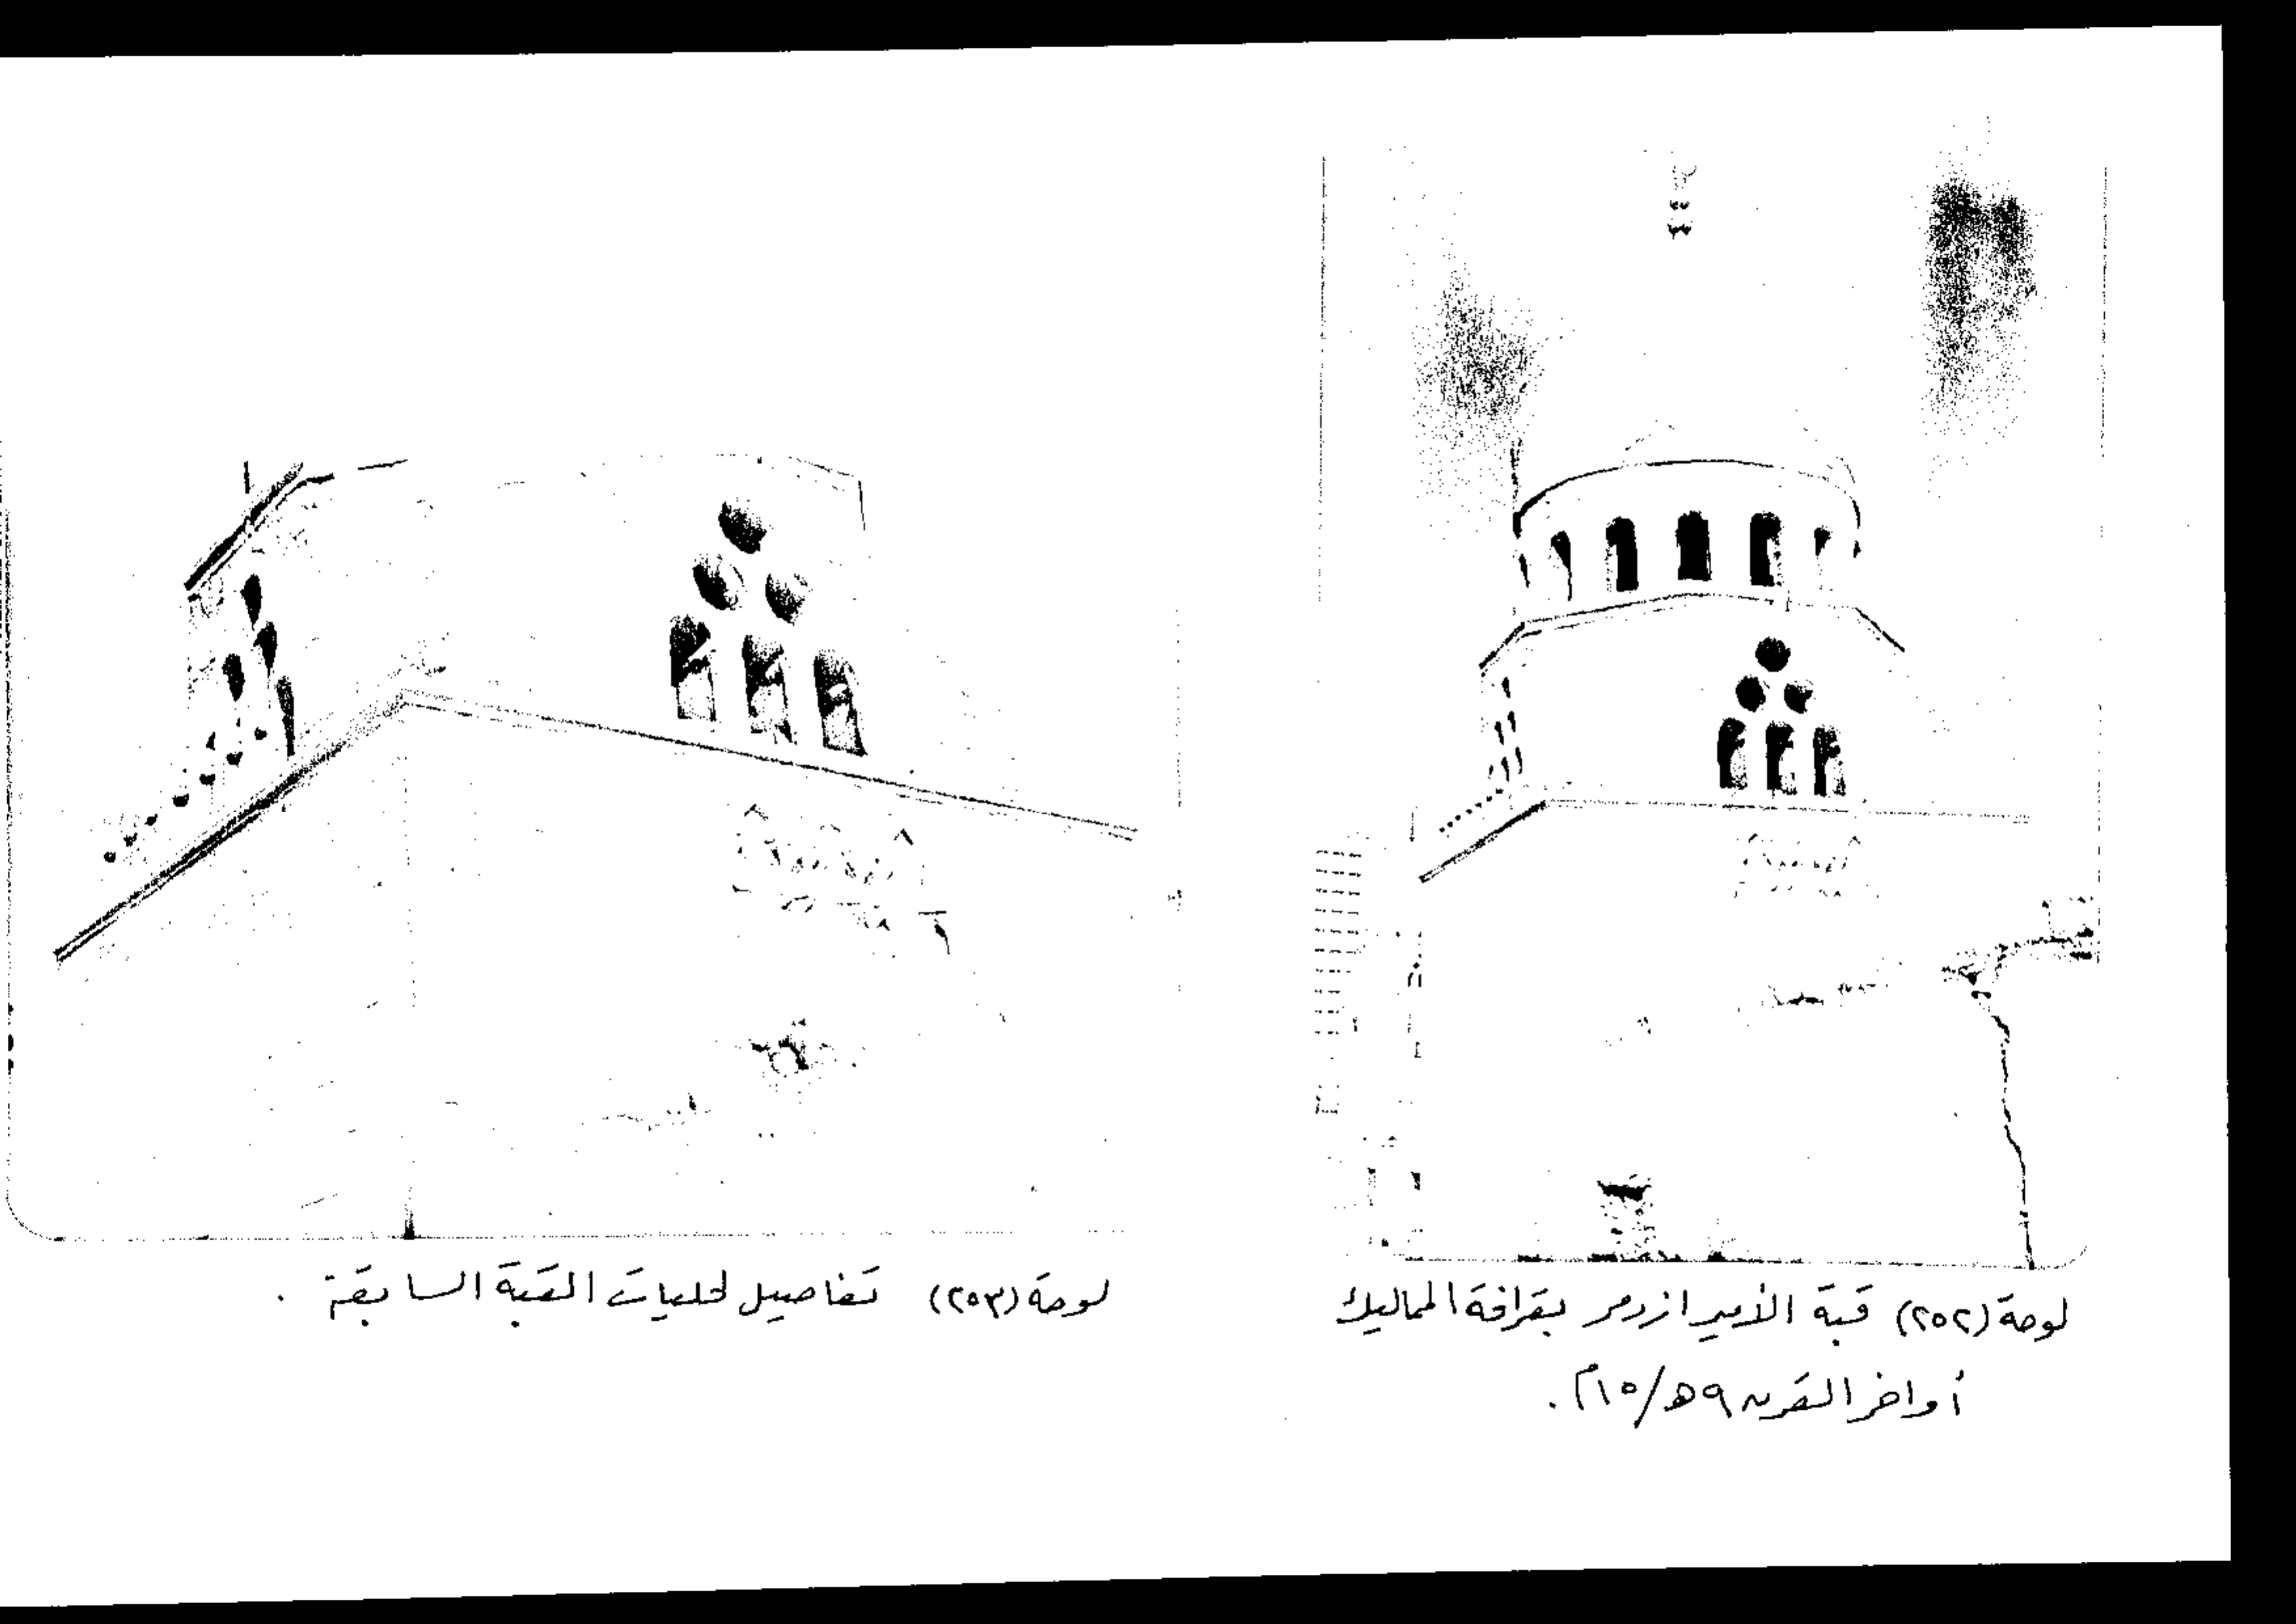 لوحة (٢٥٢) قبة الأمير ازدمر بقرافة المماليك
أواخر القرن ٩ھ/١٥م.
لوحة (٢٥٣) تفاصيل لحليات القبة السابقة .